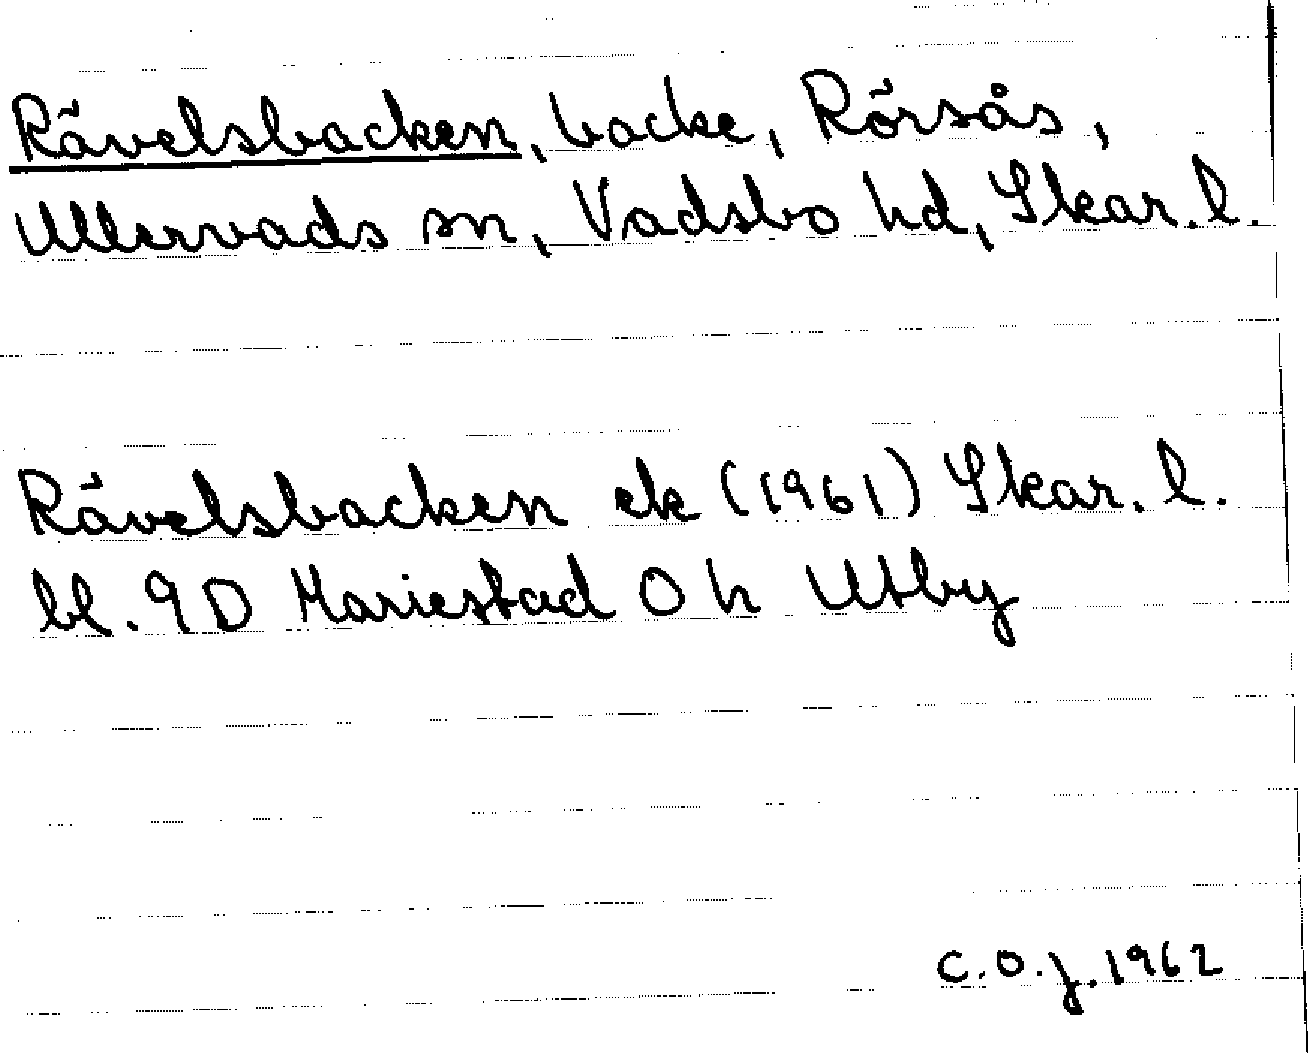 Rävelsbacken, backe, Rörsås,
Ullervads sn, Vadsbo hd, Skar. l.
Rävelsbacken ek (1961) Skar. l.
bl. 9D Mariestad 0 h Utby
C.O.J. 1962